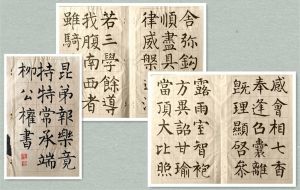 舍弥
順盡具
律威樂
若三學餘導
我腹南西者
雖騎
感會相七香
奉逢囊離
既理顯啓參
露雨室智袍
方異詔甘瑜
當頂大比照
昆弟報樂竟
特特常承端
柳公權書